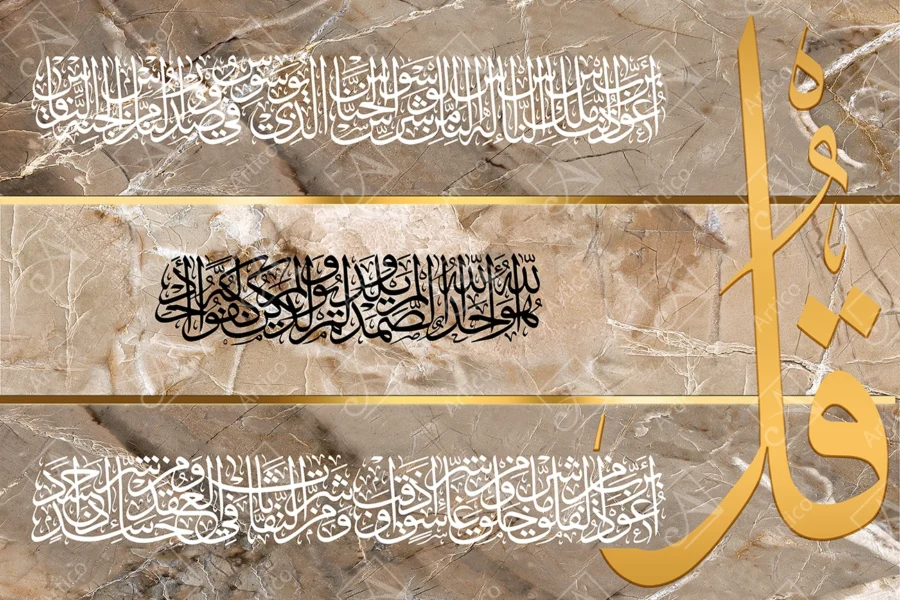 قل
أعوذ برب الناس ملك الناس إله الناس من شر الوسواس الخناس الذي يوسوس في صدور الناس من الجنة والناس
هو الله أحد الله الصمد لم يلد ولم يولد ولم يكن له كفوا أحد
أعوذ برب الفلق من شر ما خلق ومن شر غاسق إذا وقب ومن شر النفاثات في العقد ومن شر حاسد إذا حسد
Artico